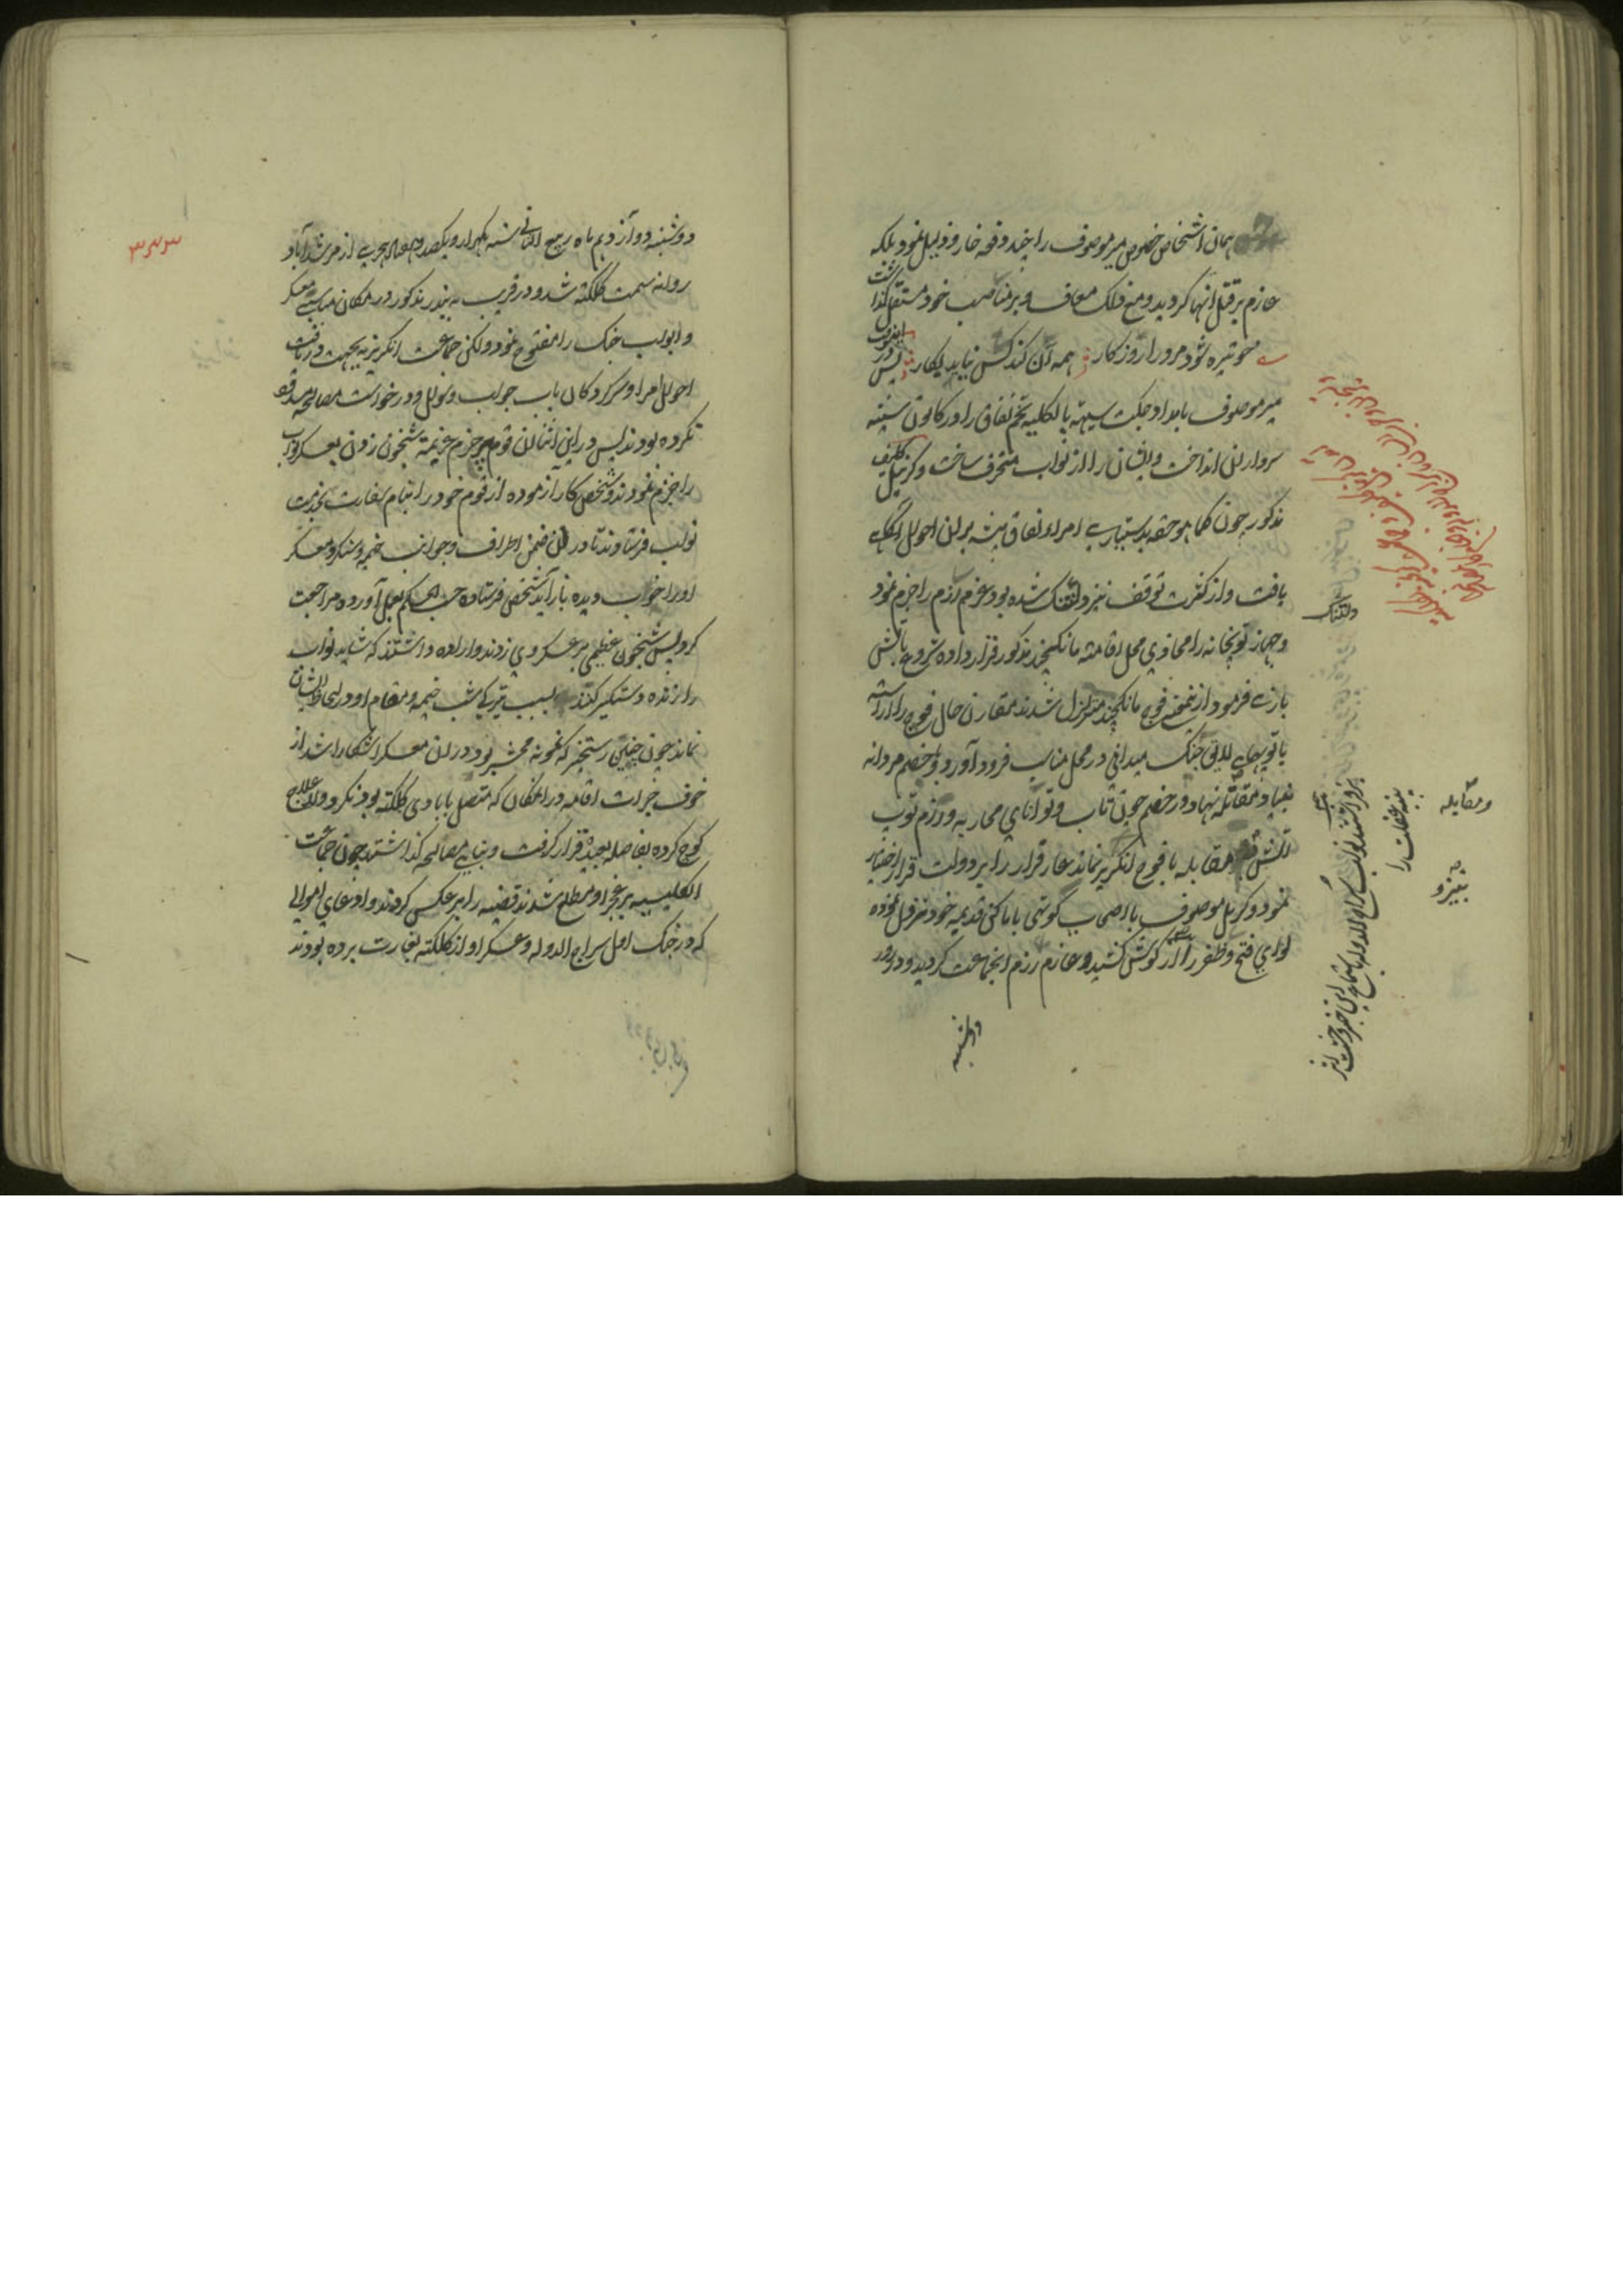 همان اشخاص خصوص میر موصوف را چند دفعه خار و ذلیل نمود بلکه
عازم بر قتل آنها گردید و من فلک معاف و بر مناصب خود مستقل گذاشت
چو تیره شود مرد را روزگار همه آن کند کش نیاید بکار پس در اینوقت
میر موصوف بامداد جکت سیهته بالکلیه تخم نفاق را در کانون سینه
سرداران انداخت و ایشان را از نواب منحرف ساخت و کرنیل کلیف
مذکور چون کماهو حقه بدستیاری امراء نفاق پیشه بر آن احوال آگهی
یافت و از کثرت توقف نیز دلتنگ شده بود عزم رزم را جزم نمود
و جهاز توپخانه را محاذی محل اقامت مانکچند مذکور قرار داده شروع بآتش
بازی فرمود از نهضت فوج مانکچند متزلزل شدند مقارن حال فوج را آراسته
با توپهای لایق جنگ میدانی در محل مناسب فرود آورد و با خصم مردانه
بنیاد مقاتله نهاد و در خصم چون تاب و توانای محاربه و رزم توپ
آتش و مقابله با فوج انگریز نماند عار فرار را بر دولت قرار اختیار
نمود و کرنیل موصوف با اصحاب کوتهی بأماکن قدیمه خود نزول نموده
لوای فتح و ظفر را از گوش کشید و عازم رزم انجماعت گردید و در روز
دوشنبه
دلتنگ
و مقابله
پنبه غفلت را
نواب سراج الدوله باستماع این خبر وحشت اثر
۳۳۳
دوشنبه دوازدهم ماه ربیع الثانی سنه یکهزار و یکصد و هفتاد هجری از مرشدآباد
روانه سمت کلکته شد و در قریب به بندر مذکور در مکان مناسبی معسکر
و ابواب جنگ را مفتوح نمود ولکن جماعت انگریزیه بجهت دریافت
احوال امرا و سرکردگان باب جواب و سوال و درخواست مصالحه مسدود
نکرده بودند پس در این اثنا آن قوم چو جزم عزیمة شبخون زدن بعسکر نواب
را جزم نمودند و شخص کار آزموده از قوم خود را بنام سفارت بخدمت
نواب فرستادند تا در آن ضمن اطراف و جوانب خیمه و لشکر و معسکر
او را خوب دیده باز آید شخص فرستاده حسب الحکم بعمل آورده مراجعت
کرد پس شبخون عظیمی بر عسکر وی زدند و اراده داشتند که شاید نواب
را زنده دستگیر کنند بسبب تیرگی شب خیمه و مقام او در لحاظ ایشان
نماند چون چنین رستخیز که نمونه محشر بود در آن معسکر آشکارا شد از
خوف جرأت اقامه در انمکان که متصل بآبادی کلکته بود نکرد و لاعلاج
کوچ کرده بفاصله بعیده قرار گرفت و بنای مصالحه گذاشتند چون جماعت
انگلیسیه بر عجز او مطلع شدند قضیه را بر عکس کردند و ادعای اموالی
که در جنگ اول سراج الدوله و عسکر او از کلکته بغارت برده بودند